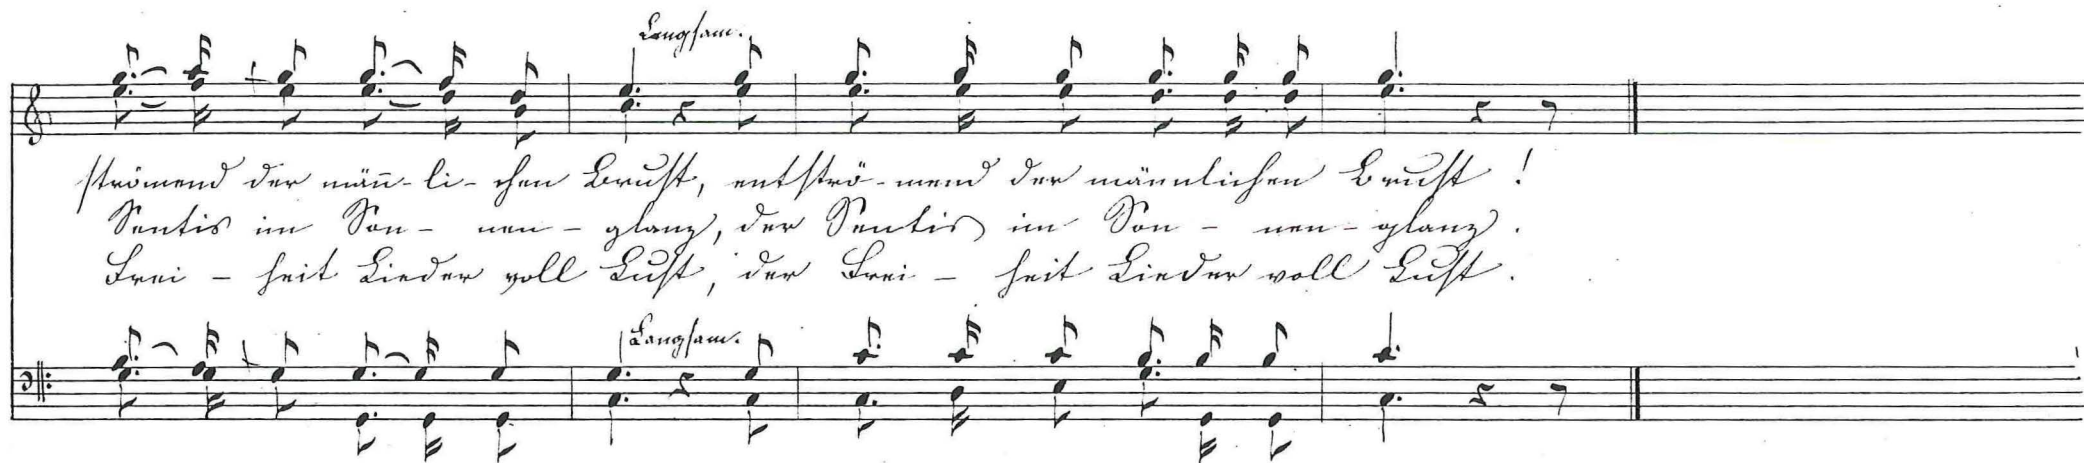 Langsam.
strömend der män̄-li-chen Brust, entströ-mend der männlichen Brust!
Sentis im Son- nen-glanz, der Sentis im Son- nen-glanz.
Frei- heit Lieder voll Lust, der Frei- heit Lieder voll Lust.
Langsam.